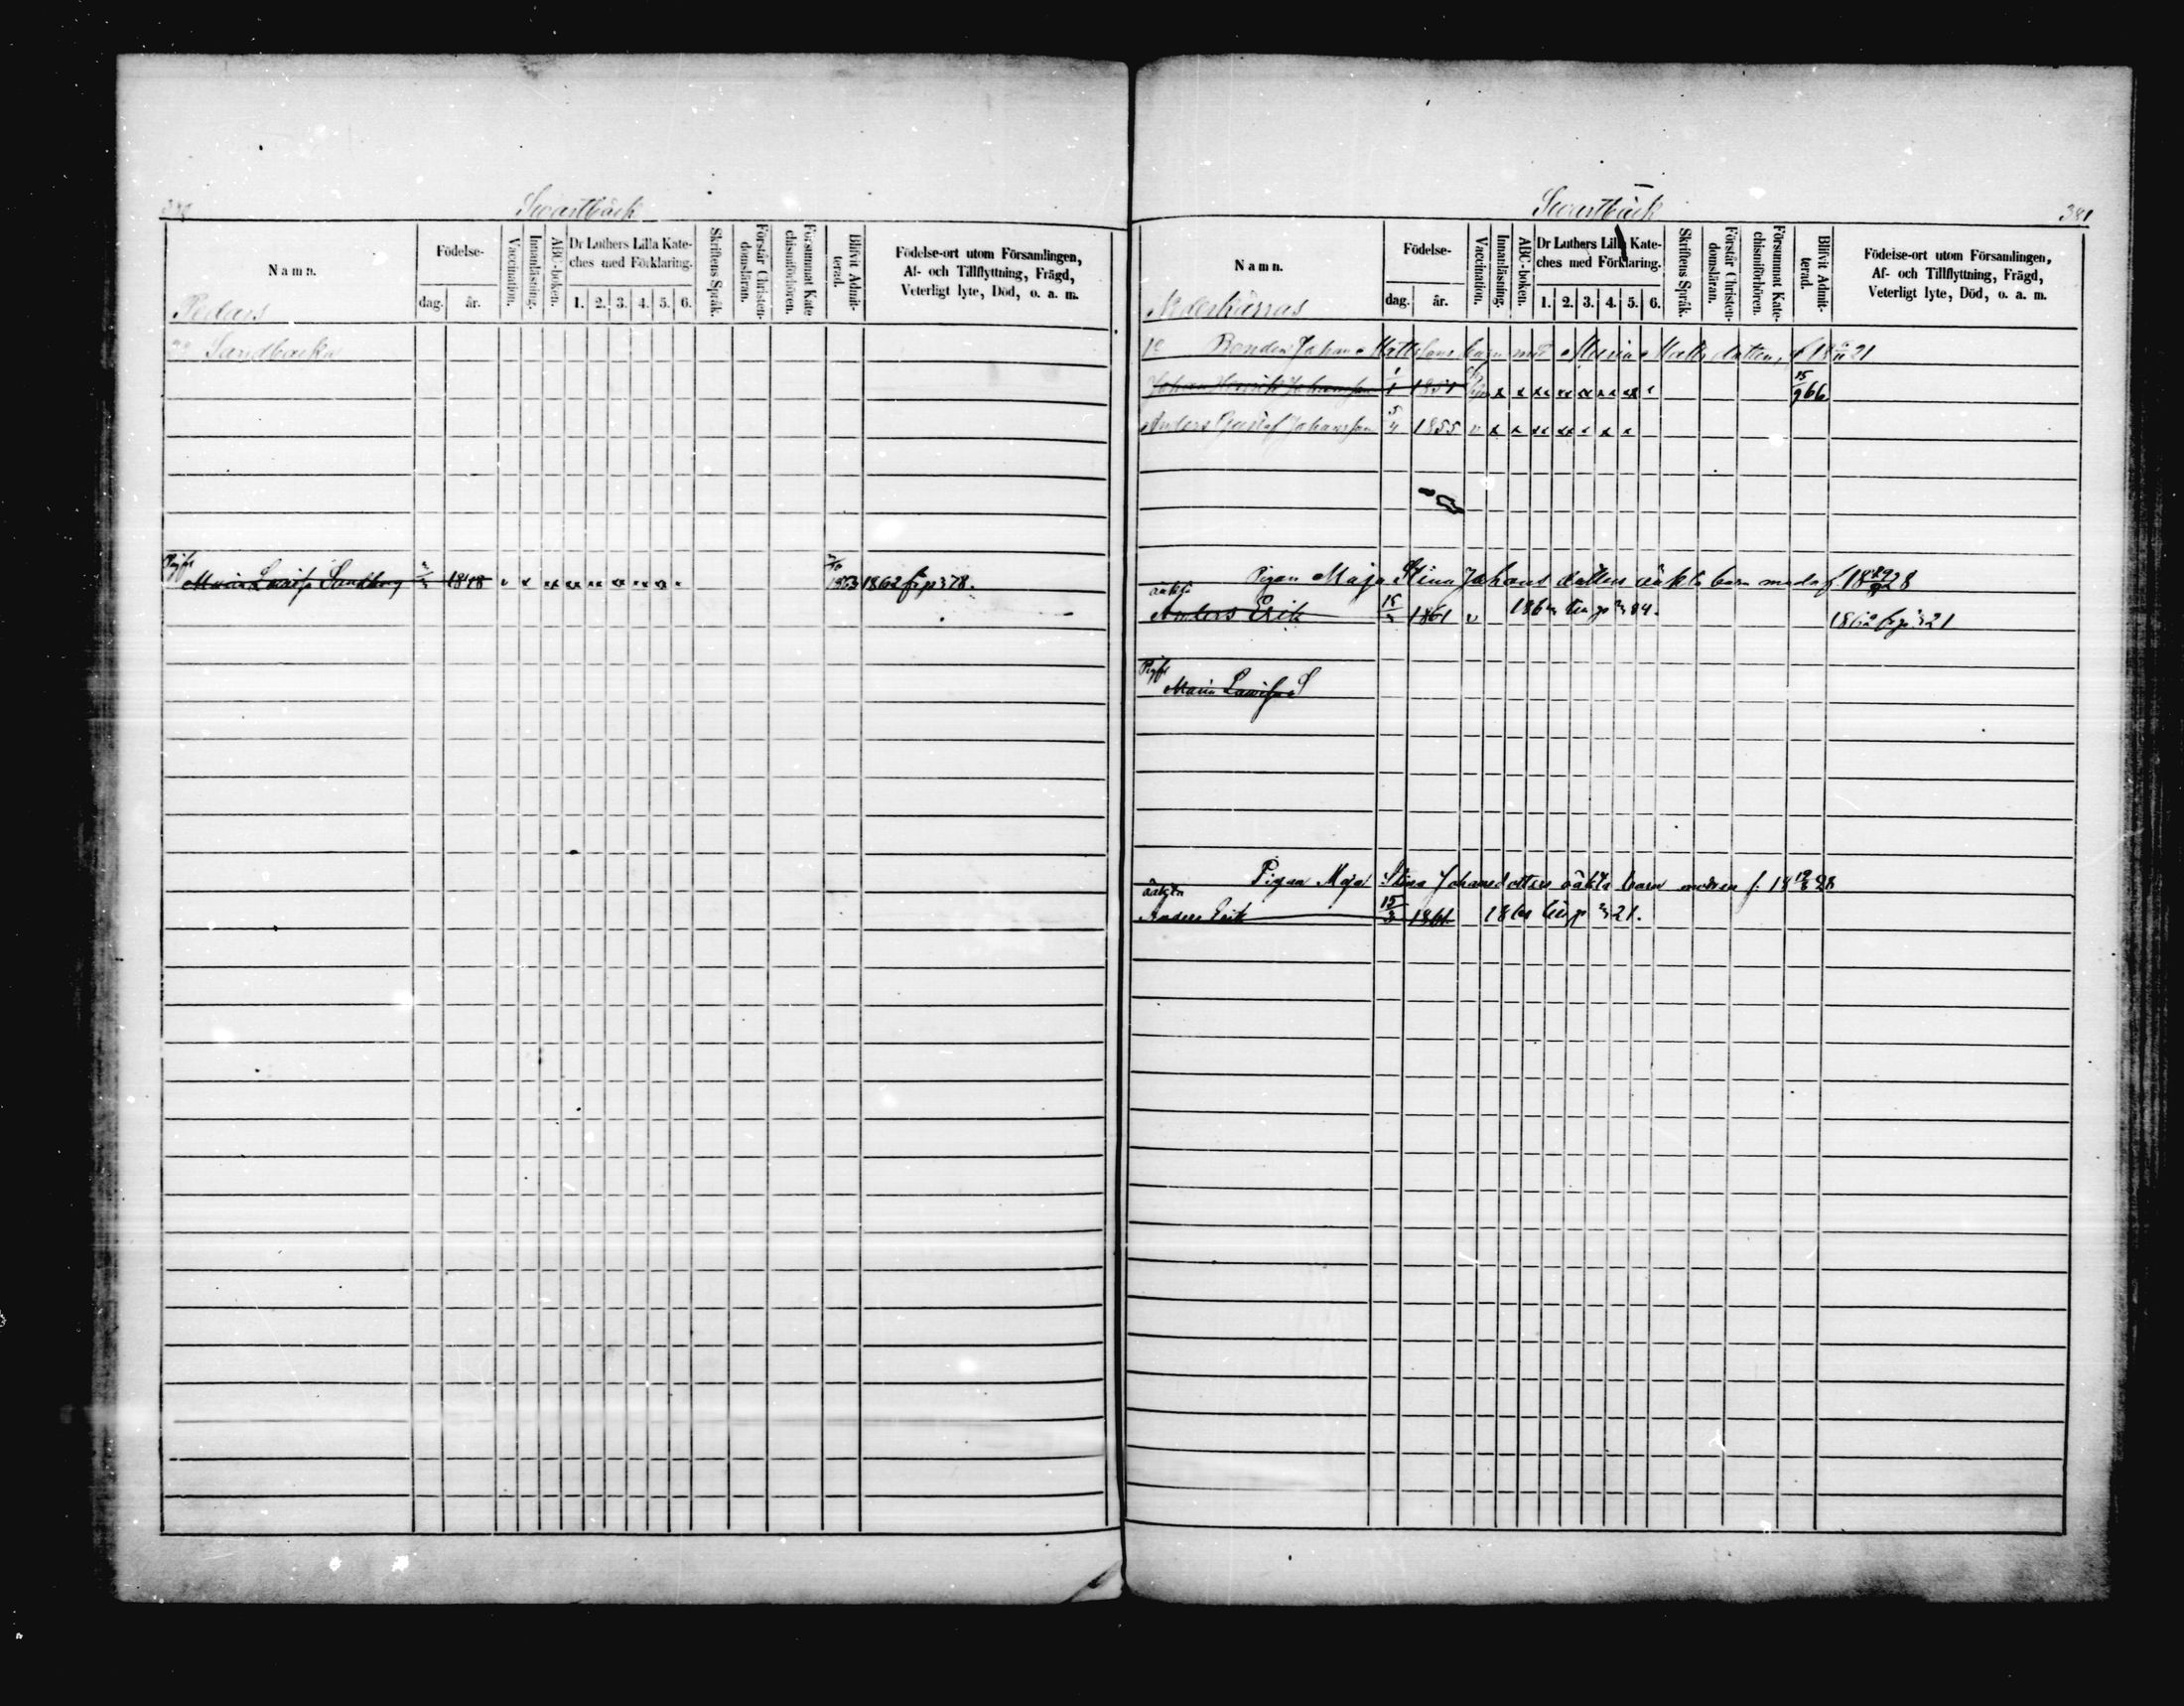 380
Swartbäck
Namn.
Födelse-
dag.
år.
Vaccination.
Innanläsning.
ABC-boken.
Dr Luthers Lilla Kate-
ches med Förklaring.
1. 2. 3. 4. 5. 6.
Skriftens Språk.
Förstår Christen-
domsläran.
Försummat Kate
chismiförhören.
Blifvit Admit-
terad.
Födelse-ort utom Församlingen,
Af- och Tillflyttning, Frägd,
Veterligt lyte, Död, o. a. m.
Pedars
Sandbacka
Maria Lovisa Sandberg 1848 1863 1862 fr p 378.
Swartbäck
381
Namn.
Födelse-
dag.
år.
Vaccination.
Innanläsning.
ABC-boken.
Dr Luthers Lilla Kate-
ches med Förklaring.
1. 2. 3. 4. 5. 6.
Skriftens Språk.
Förstår Christen-
domsläran.
Försummat Kate-
chismiförhören.
Blifvit Admit-
terad.
Födelse-ort utom Församlingen,
Af- och Tillflyttning, Frägd,
Veterligt lyte, Död, o. a. m.
Bonden Johan Mattssons barn med Maria Matts dotter, f. 18 21
Johan Henrik Johansson 1/1 1851 x x xx xx xx xx xx 15/9 66
Anders Gustaf Johansson 1855 v x x xx xx x x x
Pigan Maja Stina Johans dotters oäkta barn 28
oäkta
Anders Erik 15/3 1861 v 1862 fr p 321
Maria Lovisa S
Pigan Maja Stina Johansdotters oäkta barn modren f. 18 28
oäkta
Anders Erik 15/3 1861 321.